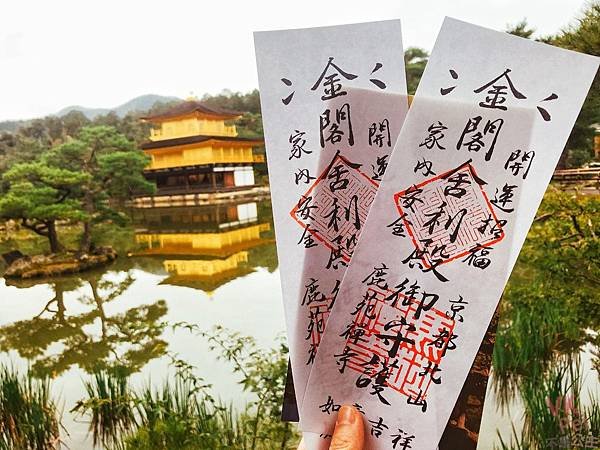 開運招福
京都北山
金閣舎利殿御守護
家内安全
鹿苑禅寺
如
吉祥
開運
金閣舎利殿
家内安全
鹿苑